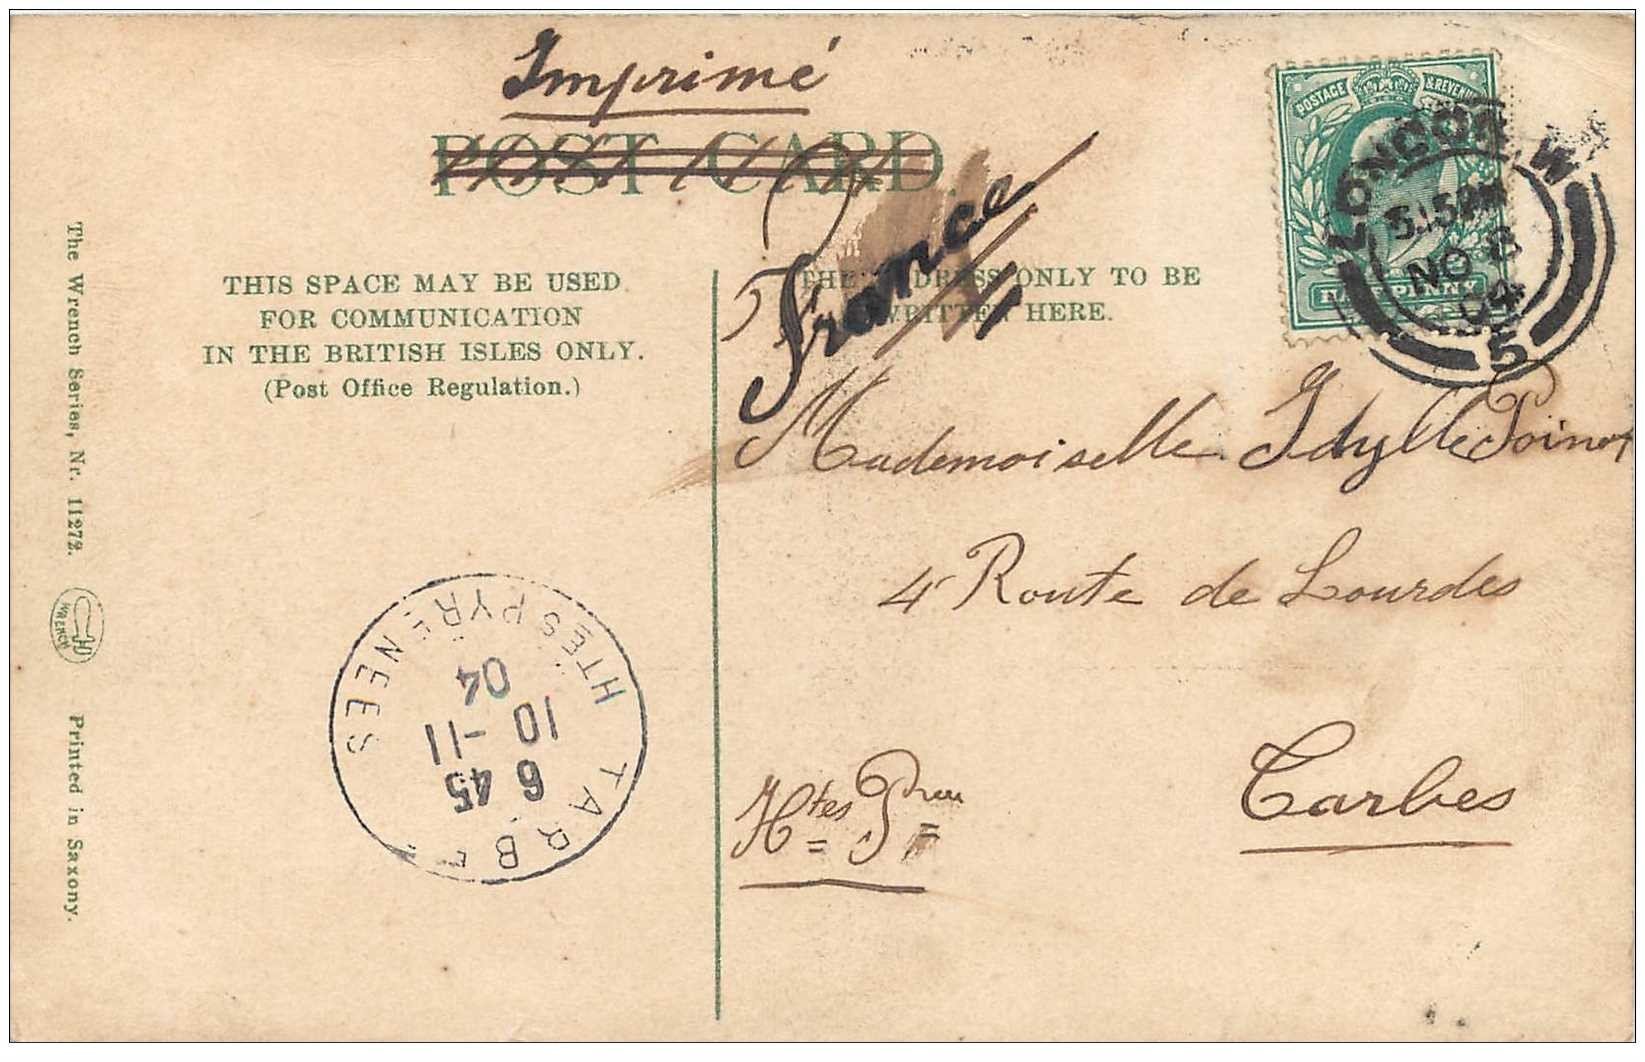 Imprimé
POST CARD
France
POSTAGE & REVENUE
HALFPENNY
LONDON. W
5.15PM
NO 8
04
5
THIS SPACE MAY BE USED
FOR COMMUNICATION
IN THE BRITISH ISLES ONLY.
(Post Office Regulation.)
THE ADDRESS ONLY TO BE
WRITTEN HERE.
Mademoiselle Idylle Poinot
4 Route de Lourdes
Tarbes
Htes Prées
TARBES
6 45
10 -11
04
HTES PYRENEES
The Wrench Series, Nr. 11272.
WRENCH
Printed in Saxony.